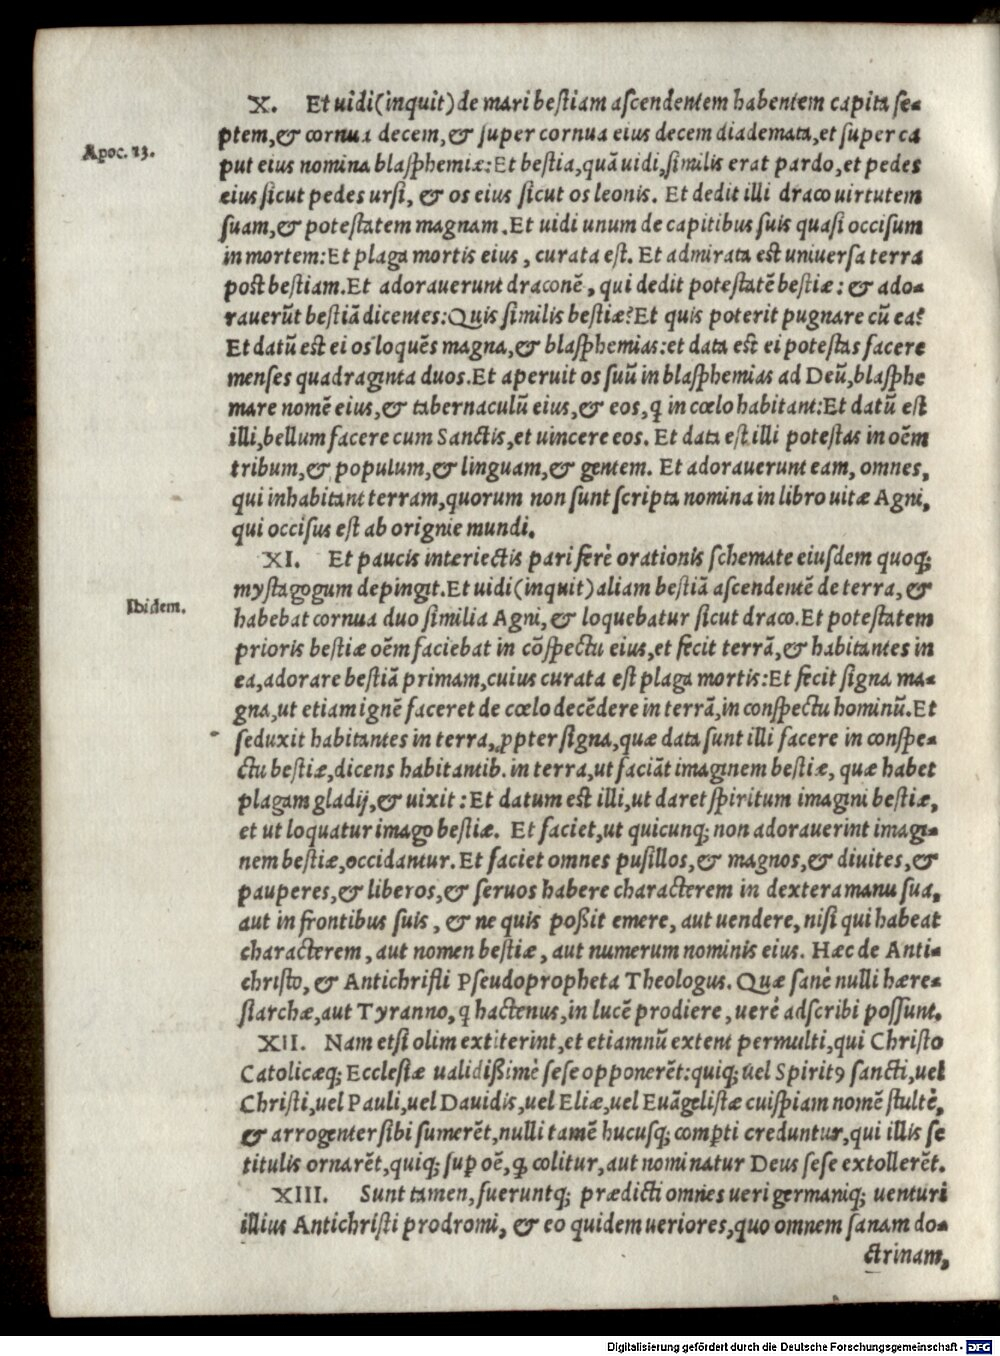 X. Et uidi (inquit) de mari bestiam ascendentem habentem capita se-
ptem, & cornua decem, & super cornua eius decem diademata, et super ca
Apoc. 13.
put eius nomina blasphemiæ: Et bestia, quã uidi, similis erat pardo, et pedes
eius sicut pedes ursi, & os eius sicut os leonis. Et dedit illi draco uirtutem
suam, & potestatem magnam. Et uidi unum de capitibus suis quasi occisum
in mortem: Et plaga mortis eius, curata est. Et admirata est uniuersa terra
post bestiam. Et adorauerunt draconẽ, qui dedit potestatẽ bestiæ: & ado-
rauerũt bestiã dicentes: Quis similis bestiæ? Et quis poterit pugnare cũ ea?
Et datũ est ei os loquẽs magna, & blasphemias: et data est ei potestas facere
menses quadraginta duos. Et aperuit os suũ in blasphemias ad Deũ, blasphe
mare nomẽ eius, & tabernaculũ eius, & eos, q̃ in cœlo habitant: Et datũ est
illi, bellum facere cum Sanctis, et uincere eos. Et data est illi potestas in oẽm
tribum, & populum, & linguam, & gentem. Et adorauerunt eam, omnes,
qui inhabitant terram, quorum non sunt scripta nomina in libro uitæ Agni,
qui occisus est ab orignie mundi.
XI. Et paucis interiectis pari ferè orationis schemate eiusdem quoq;
mystagogum depingit. Et uidi (inquit) aliam bestiã ascendentẽ de terra, &
Ibidem.
habebat cornua duo similia Agni, & loquebatur sicut draco. Et potestatem
prioris bestiæ oẽm faciebat in cõspectu eius, et fecit terrã, & habitantes in
ea, adorare bestiã primam, cuius curata est plaga mortis: Et fecit signa ma-
gna, ut etiam ignẽ faceret de cœlo decẽdere in terrã, in conspectu hominũ. Et
seduxit habitantes in terra, ꝓpter signa, quæ data sunt illi facere in conspe-
ctu bestiæ, dicens habitantib. in terra, ut faciãt imaginem bestiæ, quæ habet
plagam gladij, & uixit: Et datum est illi, ut daret spiritum imagini bestiæ,
et ut loquatur imago bestiæ. Et faciet, ut quicunq; non adorauerint imagi-
nem bestiæ, occidantur. Et faciet omnes pusillos, & magnos, & diuites, &
pauperes, & liberos, & seruos habere characterem in dextera manu sua,
aut in frontibus suis, & ne quis poßit emere, aut uendere, nisi qui habeat
characterem, aut nomen bestiæ, aut numerum nominis eius. Hæc de Anti-
christo, & Antichristi Pseudopropheta Theologus. Quæ sanè nulli hære-
siarchæ, aut Tyranno, q̃ hactenus, in lucẽ prodiere, uerè adscribi possunt.
XII. Nam etsi olim extiterint, et etiamnũ extent permulti, qui Christo
Catolicæq; Ecclesiæ ualidißimè sese opponerẽt: quiq; uel Spiritꝰ sancti, uel
Christi, uel Pauli, uel Dauidis, uel Eliæ, uel Euãgelistæ cuispiam nomẽ stultè,
& arroganter sibi sumerẽt, nulli tamẽ hucusq; comꝑti creduntur, qui illis se
titulis ornarẽt, quiq; suꝑ oẽ, q̃ colitur, aut nominatur Deus sese extollerẽt.
XIII. Sunt tamen, fueruntq; prædicti omnes ueri germaniq; uenturi
illius Antichristi prodromi, & eo quidem ueriores, quo omnem sanam do-
ctrinam,
Digitalisierung gefördert durch die Deutsche Forschungsgemeinschaft - DFG